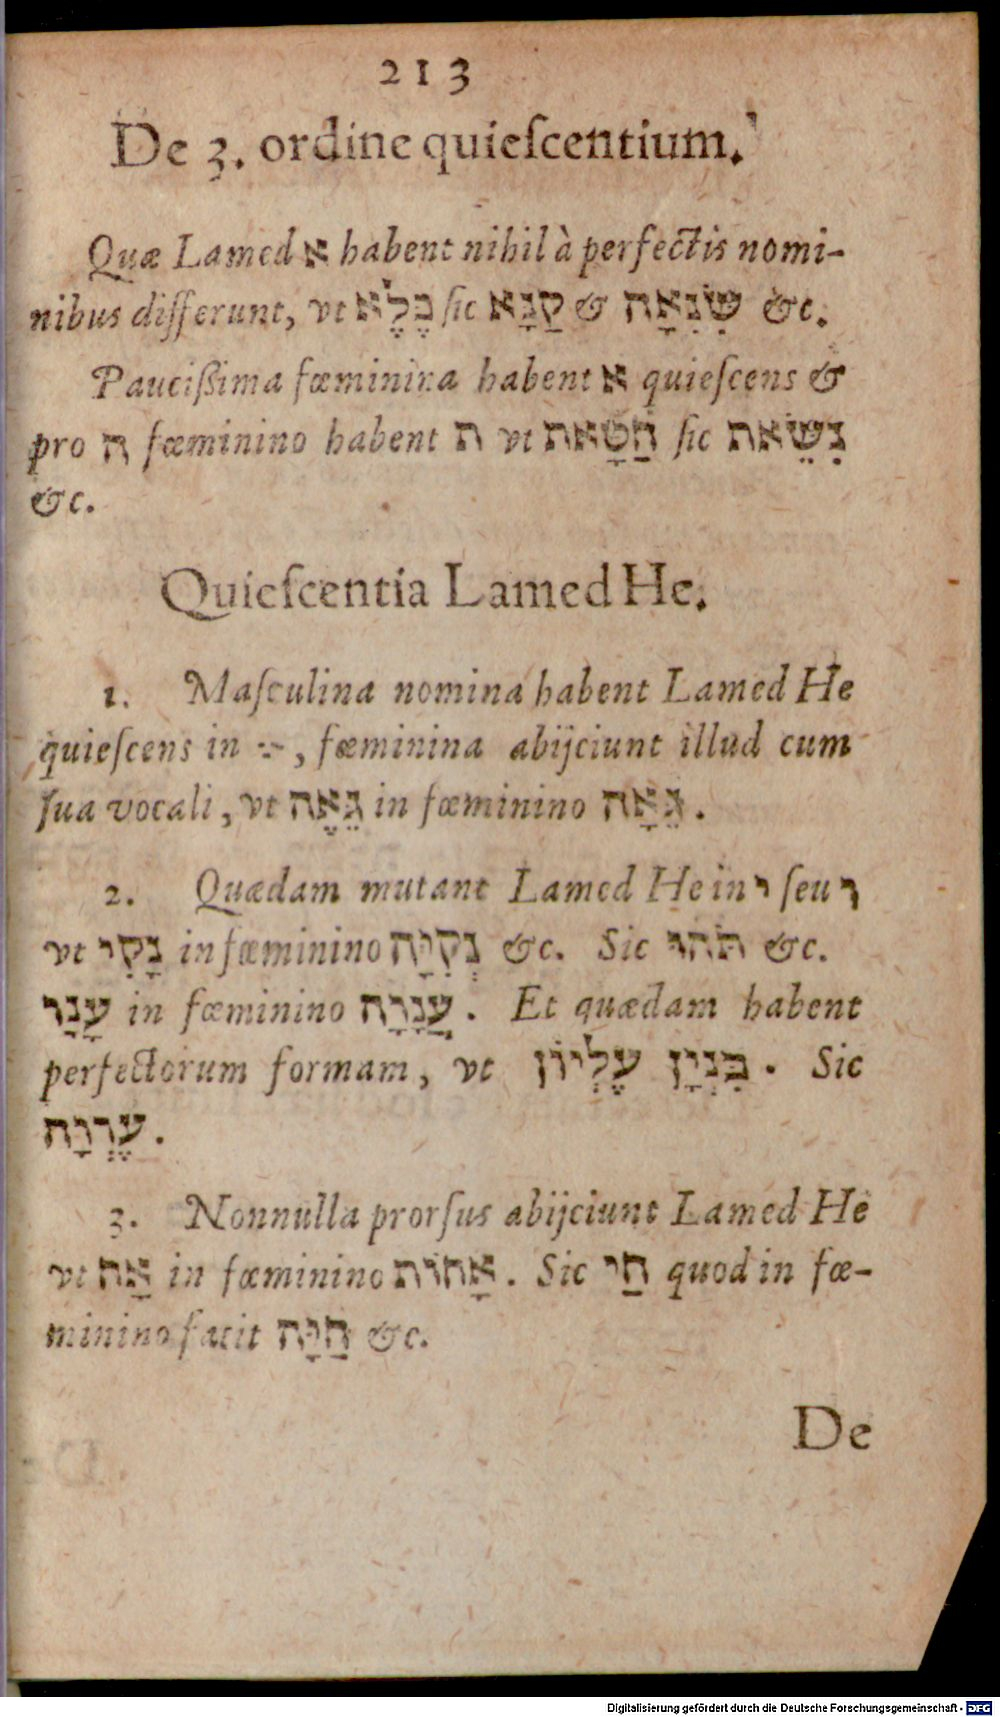 213
De 3. ordine quieſcentium.
Quæ Lamed א habent nihil à perfectis nomi-
nibus differunt, vt כֶלֶא ſic קַנָּא & שִׂנְאָה &c.
Pauciſsima fœminina habent א quieſcens &
pro ה fœminino habent ת vt חַטָּאת ſic נִשֵּׂאת
&c.
Quieſcentia Lamed He.
1. Maſculina nomina habent Lamed He
quieſcens in ֶ , fœminina abijciunt illud cum
ſua vocali, vt גֵּאֶה in fœminino גֵּאָה .
2. Quædam mutant Lamed He in י ſeu ו
vt נָקִי in fœminino נְקִיָּה &c. Sic תֹּהוּ &c.
עָנָו in fœminino עֲנָוָה . Et quædam habent
perfectorum formam, vt עֶלְיוֹן בִּנְיָן . Sic
עֶרְוָה .
3. Nonnulla prorſus abijciunt Lamed He
vt אָח in fœminino אָחוֹת . Sic חַי quod in fœ-
minino facit חַיָּה &c.
De
Digitalisierung gefördert durch die Deutsche Forschungsgemeinschaft - DFG